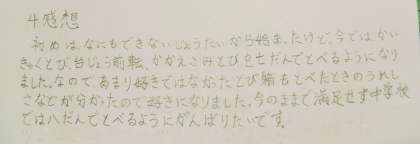 4感想
初めは、なにもできないじょうたいから始ま、たけど、今では、かい
きゃくとび、台じょう前転、かかえこみとびも七だんでとべるようになり
ました。なので、あまり好きではなかったとび箱をとべたときのうれし
さなどが分かったので好きになりました。今のままで満足せず中学校
では八だんでとべるようにがんばりたいです。